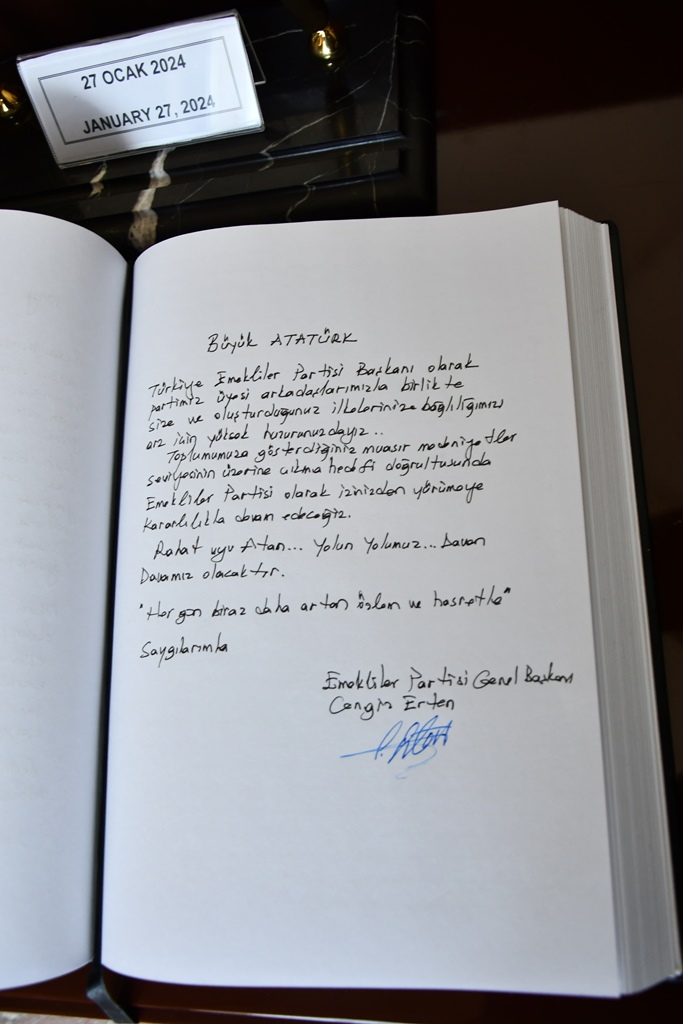 27 OCAK 2024
JANUARY 27, 2024
BÜYÜK ATATÜRK
Türkiye Emekliler Partisi Başkanı olarak
partimiz üyesi arkadaşlarımızla birlikte
size ve oluşturduğunuz ilkelerinize bağlılığımızı
arz için yüksek huzurunuzdayız..
Toplumumuza gösterdiğiniz muasır medeniyetler
seviyesinin üzerine çıkma hedefi doğrultusunda
Emekliler Partisi olarak izinizden yürümeye
kararlılıkla devam edeceğiz.
Rahat uyu Atam... Yolun Yolumuz... Davan
Davamız olacaktır.
"Her gün biraz daha artan özlem ve hasretle"
Saygılarımla
Emekliler Partisi Genel Başkanı
Cengiz Erten